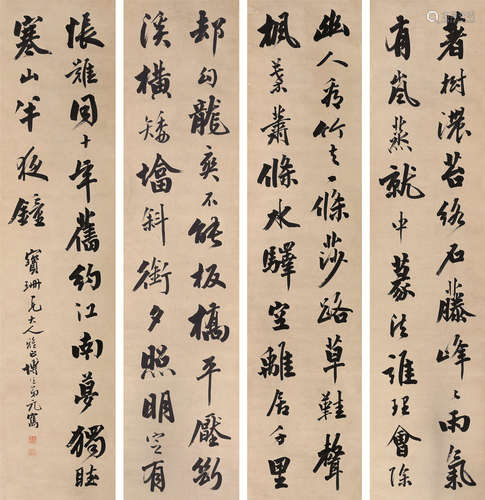 著樹濃苔絡石藤峰〻雨氣
有嵐蒸就中篆法誰理會除
幽人看竹去一條莎路草鞋聲
楓葉蕭條水驛空離居千里
却勾龍爽不能板橋平壓斷
溪橫矮壋斜銜夕照明定有
悵難同十年舊約江南夢獨聽
寒山半夜鐘
寶珊大人雅正